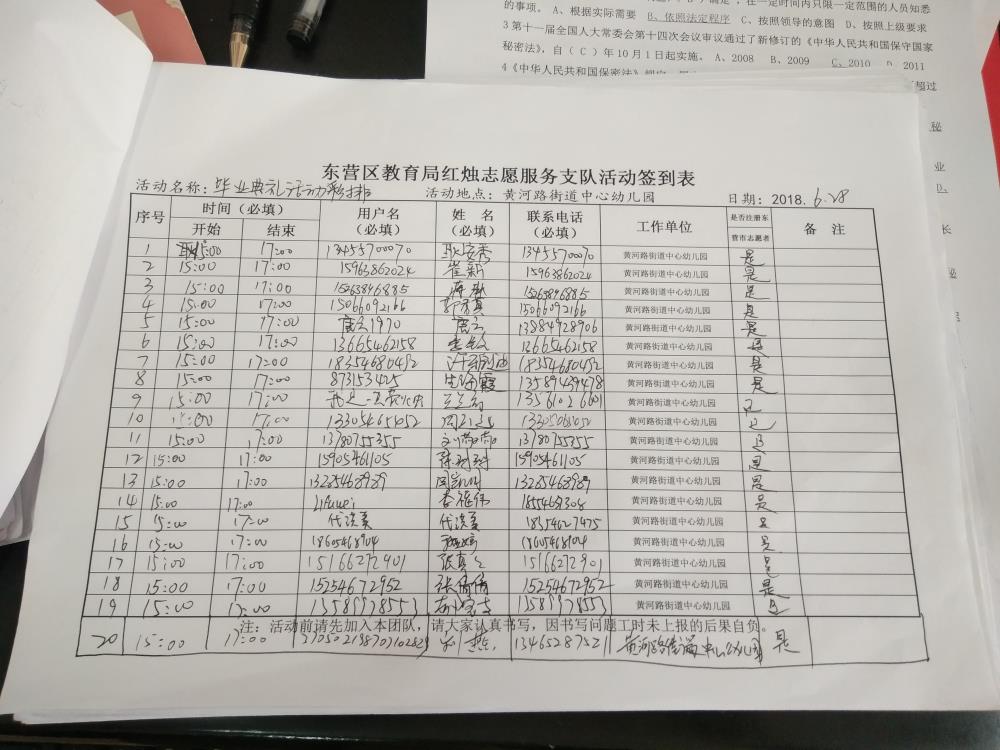 的事项。 A、根据实际需要 B、依照法定程序 C、按照领导的意图 D、按照上级要求
3 第十一届全国人大常委会第十四次会议审议通过了新修订的《中华人民共和国保守国家
秘密法》，自（ C ）年 10 月 1 日起施行。 A、2008 B、2009 C、2010 D、2011
4《中华人民共和国保密法》
东营区教育局红烛志愿服务支队活动签到表
活动名称：毕业典礼活动彩排 活动地点：黄河路街道中心幼儿园 日期：2018.6.28
序号 时间（必填） 用户名（必填） 姓 名（必填） 联系电话（必填） 工作单位 是否注册东营市志愿者 备 注
开始 结束
1 15:00 17:00 13455700070 13455700070 黄河路街道中心幼儿园 是
2 15:00 17:00 15963862024 崔新 15963862024 黄河路街道中心幼儿园 是
3 15:00 17:00 15263896885 15263896885 黄河路街道中心幼儿园 是
4 15:00 17:00 15066092166 15066092166 黄河路街道中心幼儿园 是
5 15:00 17:00 13884928906 黄河路街道中心幼儿园 是
6 15:00 17:00 13665462158 13665462158 黄河路街道中心幼儿园 是
7 15:00 17:00 18354680492 18354680492 黄河路街道中心幼儿园 是
8 15:00 17:00 873153425 13589439478 黄河路街道中心幼儿园 是
9 15:00 17:00 13561026601 黄河路街道中心幼儿园 是
10 15:00 17:00 黄河路街道中心幼儿园 是
11 15:00 17:00 13780755355 13780755355 黄河路街道中心幼儿园 是
12 15:00 17:00 15905461105 15905461105 黄河路街道中心幼儿园 是
13 15:00 17:00 13285468989 13285468989 黄河路街道中心幼儿园 是
14 15:00 17:00 黄河路街道中心幼儿园 是
15 15:00 17:00 18354627475 黄河路街道中心幼儿园 是
16 15:00 17:00 18605468904 18605468904 黄河路街道中心幼儿园 是
17 15:00 17:00 15166272901 15166272901 黄河路街道中心幼儿园 是
18 15:00 17:00 15254672952 张倩倩 15254672952 黄河路街道中心幼儿园 是
19 15:00 17:00 13589978553 13589978553 黄河路街道中心幼儿园 是
注：活动前请先加入本团队，请大家认真书写，因书写问题工时未上报的后果自负。
20 15:00 17:00 13465287521 黄河路街道中心幼儿园 是